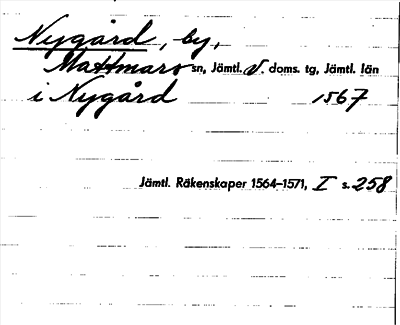 Nygård, by,
Mattmars sn, Jämtl. V. doms. tg, Jämtl. län
i Nygård 1567
Jämtl. Räkenskaper 1564–1571, I s. 258